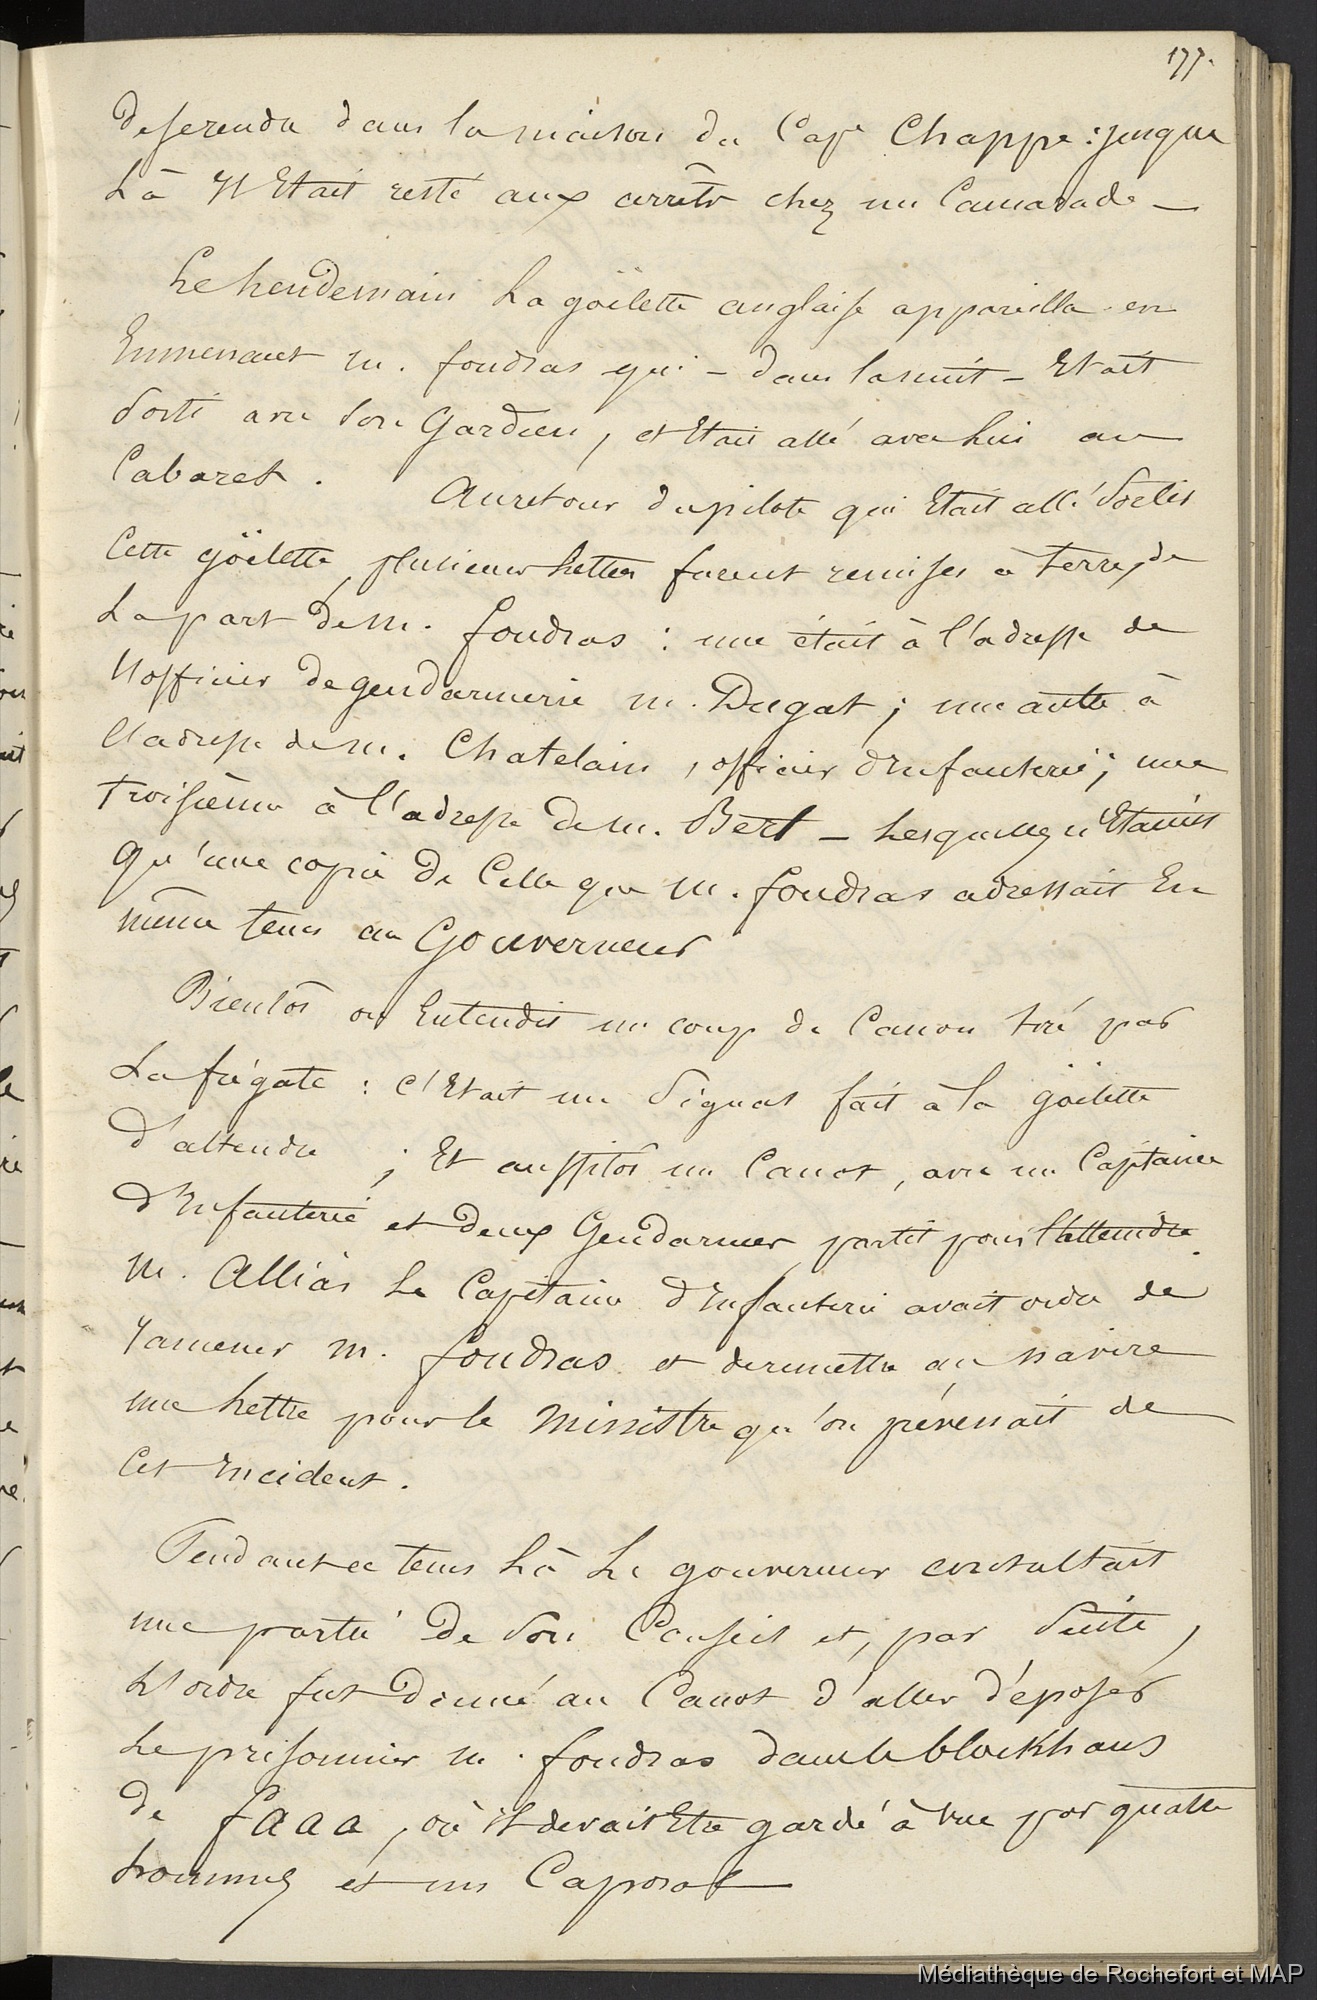 177.
de se rendre dans la maison du Cape Chappe : jusque
Là Il Etait resté aux arrêts chez un Camarade —
Le Lendemain La göelette anglaise appareilla en
Emmenant M. foudras qui - dans la nuit - Etait
Sorti avec son Gardien, et Etait allé avec Lui au
Cabaret. Au retour du pilote qui Etait allé Sortir
Cette göelette, plusieurs Lettres furent remises à terre, de
La part de M. foudras : une était à l'adresse de
L'officier de gendarmerie M. Dugat ; une autre à
L'adresse de M. Chatelain, officier d'Infanterie ; une
troisième à l'adresse de M. Bert — Lesquelles n'Etaient
qu'une copie de Celle que M. foudras adressait En
même tems au Gouverneur
Bientôt on Entendit un coup de Canon tiré par
La frégate : c'Etait un Signal fait à la göelette
d'attendre ; Et aussitôt un Canot, avec un Capitaine
d'Infanterie et deux Gendarmes, partit pour l'atteindre.
M. Alliàs Le Capitaine d'Infanterie avait ordre de
ramener M. foudras et de remettre au navire
une Lettre pour le Ministre qu'on prévenait de
Cet Incident.
Pendant ce tems Là Le gouverneur consultait
une partie de Son Conseil et, par Suite,
L'ordre fut Donné au Canot d'aller déposer
Le prisonnier M. foudras dans le blockhaus
de faaa, où il devait Etre gardé à vue par quatre
hommes et un Caporal —
Médiathèque de Rochefort et MAP